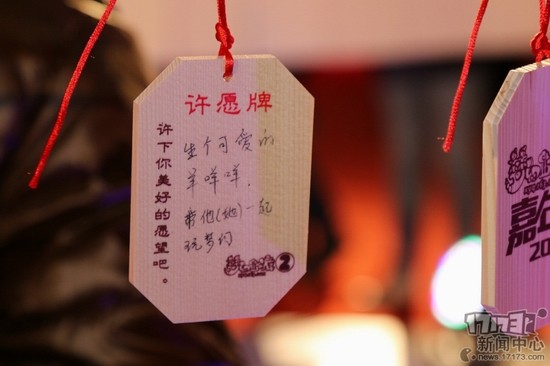 许愿牌
许下你美好的愿望吧。
生个可爱的
羊咩咩，
带他(她)一起
玩梦幻
2
嘉
20
17173
新闻中心
news.17173.com